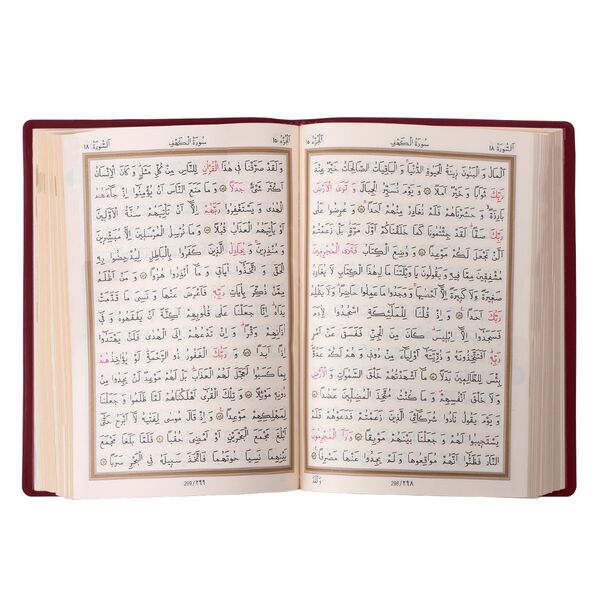 اَلسُّورَةُ ١٨ سُورَةُ الْكَهْفِ اَلْجُزْءُ ١٥
اَلْمَالُ وَالْبَنُونَ زِينَةُ الْحَيٰوةِ الدُّنْيَا وَالْبَاقِيَاتُ الصَّالِحَاتُ خَيْرٌ عِنْدَ
رَبِّكَ ثَوَابًا وَخَيْرٌ اَمَلًا ۝ وَيَوْمَ نُسَيِّرُ الْجِبَالَ وَتَرَى الْاَرْضَ
بَارِزَةً وَحَشَرْنَاهُمْ فَلَمْ نُغَادِرْ مِنْهُمْ اَحَدًا ۝ وَعُرِضُوا عَلٰى
رَبِّكَ صَفًّا لَقَدْ جِئْتُمُونَا كَمَا خَلَقْنَاكُمْ اَوَّلَ مَرَّةٍ بَلْ زَعَمْتُمْ
اَلَّنْ نَجْعَلَ لَكُمْ مَوْعِدًا ۝ وَوُضِعَ الْكِتَابُ فَتَرَى الْمُجْرِمِينَ
مُشْفِقِينَ مِمَّا فِيهِ وَيَقُولُونَ يَا وَيْلَتَنَا مَالِ هٰذَا الْكِتَابِ لَا يُغَادِرُ
صَغِيرَةً وَلَا كَبِيرَةً اِلَّا اَحْصٰيهَا وَوَجَدُوا مَا عَمِلُوا حَاضِرًا وَلَا يَظْلِمُ
رَبُّكَ اَحَدًا ۝ وَاِذْ قُلْنَا لِلْمَلٰئِكَةِ اسْجُدُوا لِاٰدَمَ
فَسَجَدُوا اِلَّا اِبْلِيسَ كَانَ مِنَ الْجِنِّ فَفَسَقَ عَنْ اَمْرِ
رَبِّهِ اَفَتَتَّخِذُونَهُ وَذُرِّيَّتَهُ اَوْلِيَاءَ مِنْ دُونِي وَهُمْ لَكُمْ عَدُوٌّ
بِئْسَ لِلظَّالِمِينَ بَدَلًا ۝ مَا اَشْهَدْتُهُمْ خَلْقَ السَّمٰوَاتِ وَالْاَرْضِ
وَلَا خَلْقَ اَنْفُسِهِمْ وَمَا كُنْتُ مُتَّخِذَ الْمُضِلِّينَ عَضُدًا ۝
وَيَوْمَ يَقُولُ نَادُوا شُرَكَائِيَ الَّذِينَ زَعَمْتُمْ فَدَعَوْهُمْ فَلَمْ
يَسْتَجِيبُوا لَهُمْ وَجَعَلْنَا بَيْنَهُمْ مَوْبِقًا ۝ وَرَاَ الْمُجْرِمُونَ
النَّارَ فَظَنُّوا اَنَّهُمْ مُوَاقِعُوهَا وَلَمْ يَجِدُوا عَنْهَا مَصْرِفًا ۝
298/٢٩٨ وَلَقَدْ
اَلْجُزْءُ ١٥ سُورَةُ الْكَهْفِ اَلسُّورَةُ ١٨
وَلَقَدْ صَرَّفْنَا فِي هٰذَا الْقُرْاٰنِ لِلنَّاسِ مِنْ كُلِّ مَثَلٍ وَكَانَ الْاِنْسَانُ
اَكْثَرَ شَيْءٍ جَدَلًا ۝ وَمَا مَنَعَ النَّاسَ اَنْ يُؤْمِنُوا اِذْ جَاءَهُمُ
الْهُدٰى وَيَسْتَغْفِرُوا رَبَّهُمْ اِلَّا اَنْ تَأْتِيَهُمْ سُنَّةُ الْاَوَّلِينَ
اَوْ يَأْتِيَهُمُ الْعَذَابُ قُبُلًا ۝ وَمَا نُرْسِلُ الْمُرْسَلِينَ اِلَّا مُبَشِّرِينَ
وَمُنْذِرِينَ وَيُجَادِلُ الَّذِينَ كَفَرُوا بِالْبَاطِلِ لِيُدْحِضُوا بِهِ
الْحَقَّ وَاتَّخَذُوا اٰيَاتِي وَمَا اُنْذِرُوا هُزُوًا ۝ وَمَنْ اَظْلَمُ
مِمَّنْ ذُكِّرَ بِاٰيَاتِ رَبِّهِ فَاَعْرَضَ عَنْهَا وَنَسِيَ مَا قَدَّمَتْ
يَدَاهُ اِنَّا جَعَلْنَا عَلٰى قُلُوبِهِمْ اَكِنَّةً اَنْ يَفْقَهُوهُ وَفِي
اٰذَانِهِمْ وَقْرًا وَاِنْ تَدْعُهُمْ اِلَى الْهُدٰى فَلَنْ يَهْتَدُوا
اِذًا اَبَدًا ۝ وَرَبُّكَ الْغَفُورُ ذُو الرَّحْمَةِ لَوْ يُؤَاخِذُهُمْ
بِمَا كَسَبُوا لَعَجَّلَ لَهُمُ الْعَذَابَ بَلْ لَهُمْ مَوْعِدٌ لَنْ يَجِدُوا مِنْ
دُونِهِ مَوْئِلًا ۝ وَتِلْكَ الْقُرٰى اَهْلَكْنَاهُمْ لَمَّا ظَلَمُوا وَجَعَلْنَا
لِمَهْلِكِهِمْ مَوْعِدًا ۝ وَاِذْ قَالَ مُوسٰى لِفَتٰيهُ لَا اَبْرَحُ حَتّٰى
اَبْلُغَ مَجْمَعَ الْبَحْرَيْنِ اَوْ اَمْضِيَ حُقُبًا ۝ فَلَمَّا بَلَغَا مَجْمَعَ
بَيْنِهِمَا نَسِيَا حُوتَهُمَا فَاتَّخَذَ سَبِيلَهُ فِي الْبَحْرِ سَرَبًا ۝
299/٢٩٩